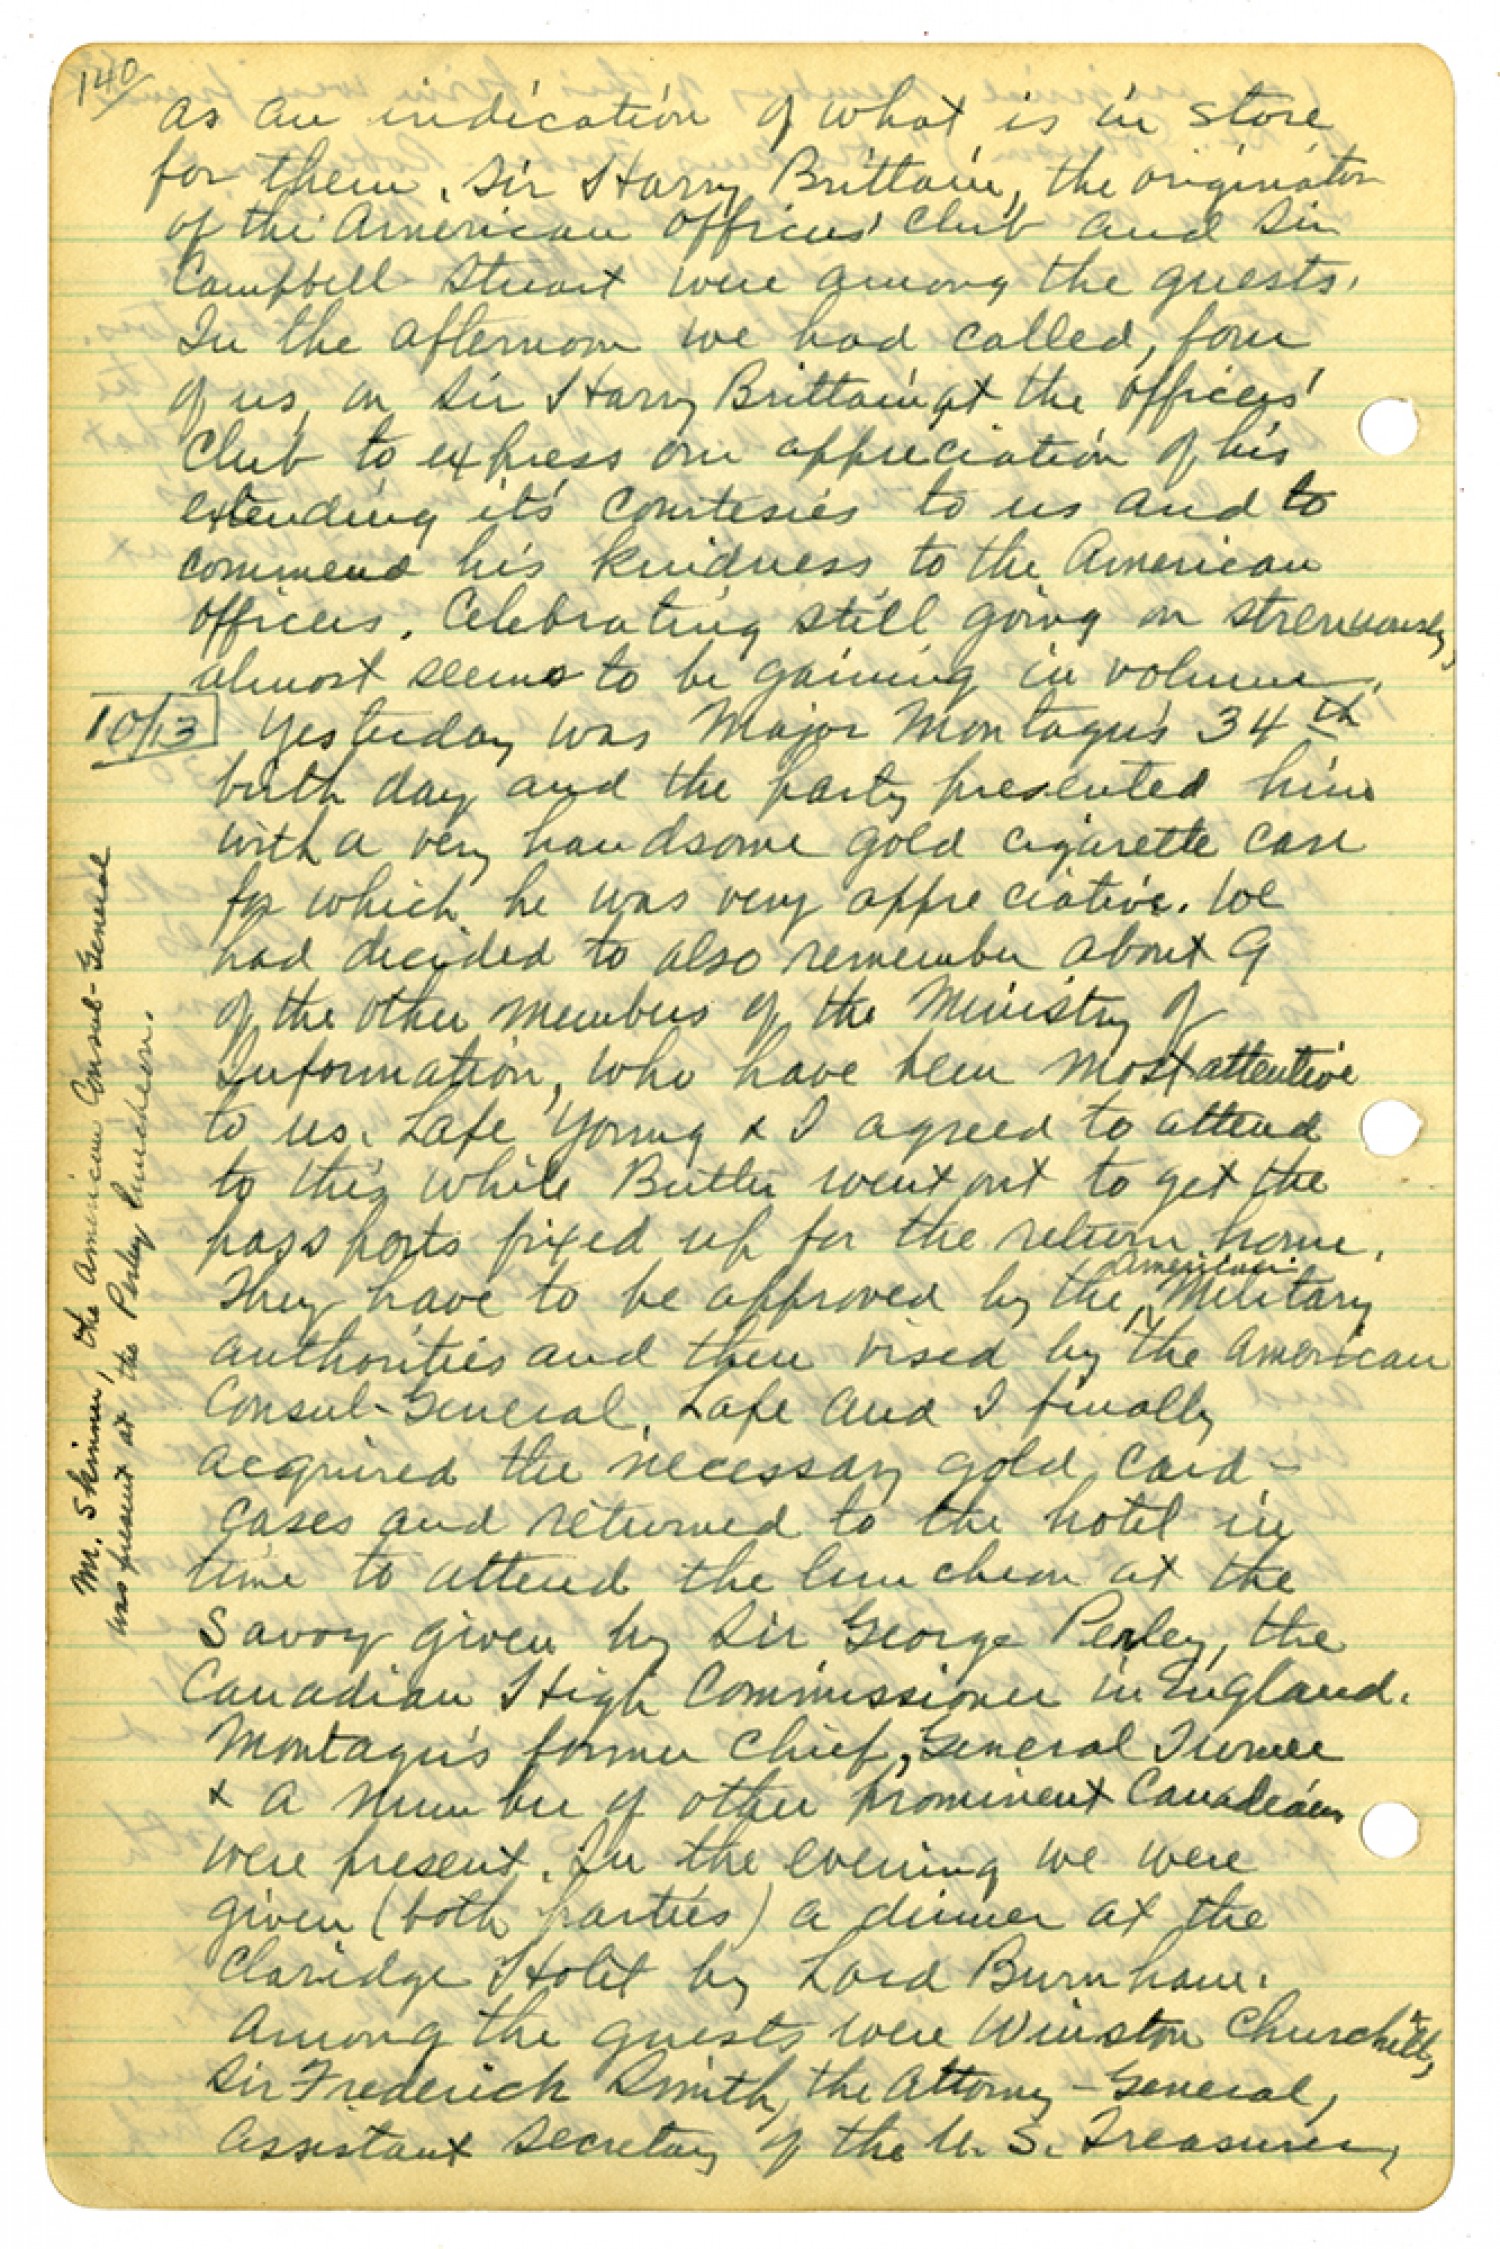 140
as an indication of what is in store
for them. Sir Harry Brittain, the originator
of the American Officers' Club and Sir
Campbell Stuart were among the guests.
In the afternoon we had called, four
of us, on Sir Harry Brittain at the Officers'
Club to express our appreciation of his
extending it's courtesies to us and to
commend his kindness to the American
Officers. Celebrating still going on strenuously,
almost seems to be gaining in volume.
10/13 Yesterday was Major Montagu's 34th
birth day and the party presented him
with a very handsome gold cigarette case
for which he was very appreciative. We
had decided to also remember about 9
of the other members of the Ministry of
Information, who have been most attentive
to us. Lafe Young & I agreed to attend
to this while Butler went out to get the
passports fixed up for the return home.
They have to be approved by the American Military
authorities and then vised by the American
Consul-General. Lafe and I finally
acquired the necessary gold card-
cases and returned to the hotel in
time to attend the luncheon at the
Savoy given by Sir George Perley, the
Canadian High Commissioner in England.
Montagu's former Chief, General Turner
& a number of other prominent Canadians
were present. In the evening we were
given (both parties) a dinner at the
Claridge Hotel by Lord Burnham.
Among the guests were Winston Churchill,
Sir Frederick Smith, the Attorney-General,
Assistant Secretary of the U. S. Treasurer,
Mr. Skinner, the American Consul-General
was present at the Perley luncheon.